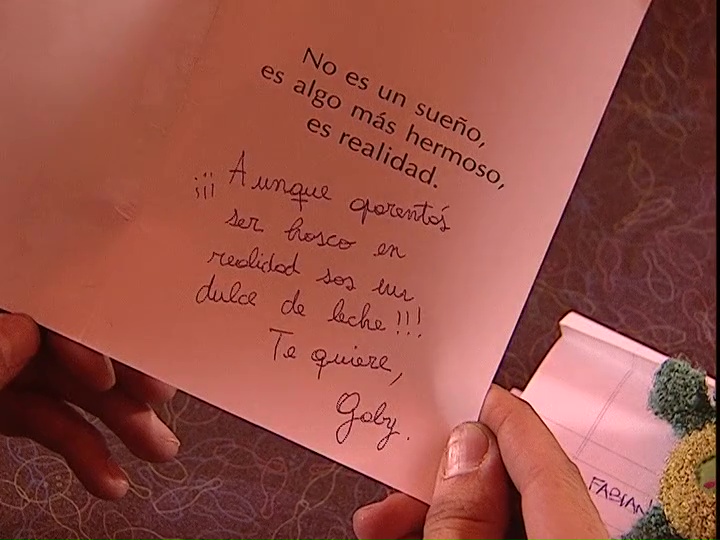 No es un sueño,
es algo más hermoso,
es realidad.
¡¡¡ Aunque aparentás
ser hosco en
realidad sos un
dulce de leche!!!
Te quiere,
Goby.
FABIAN